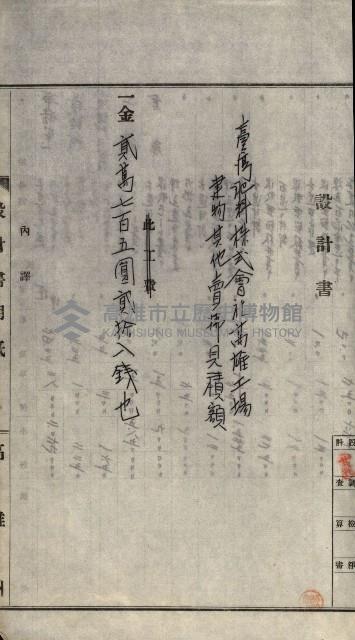 設計書
臺灣肥料株式會社高雄工場
建物其他賣却見積額
此工費
一金貳萬七百五圓貳拾八錢也
內譯
設計書用紙
高雄州
高雄市立歷史博物館
KAOHSIUNG MUSEUM OF HISTORY
設計
調查
檢算
淨書